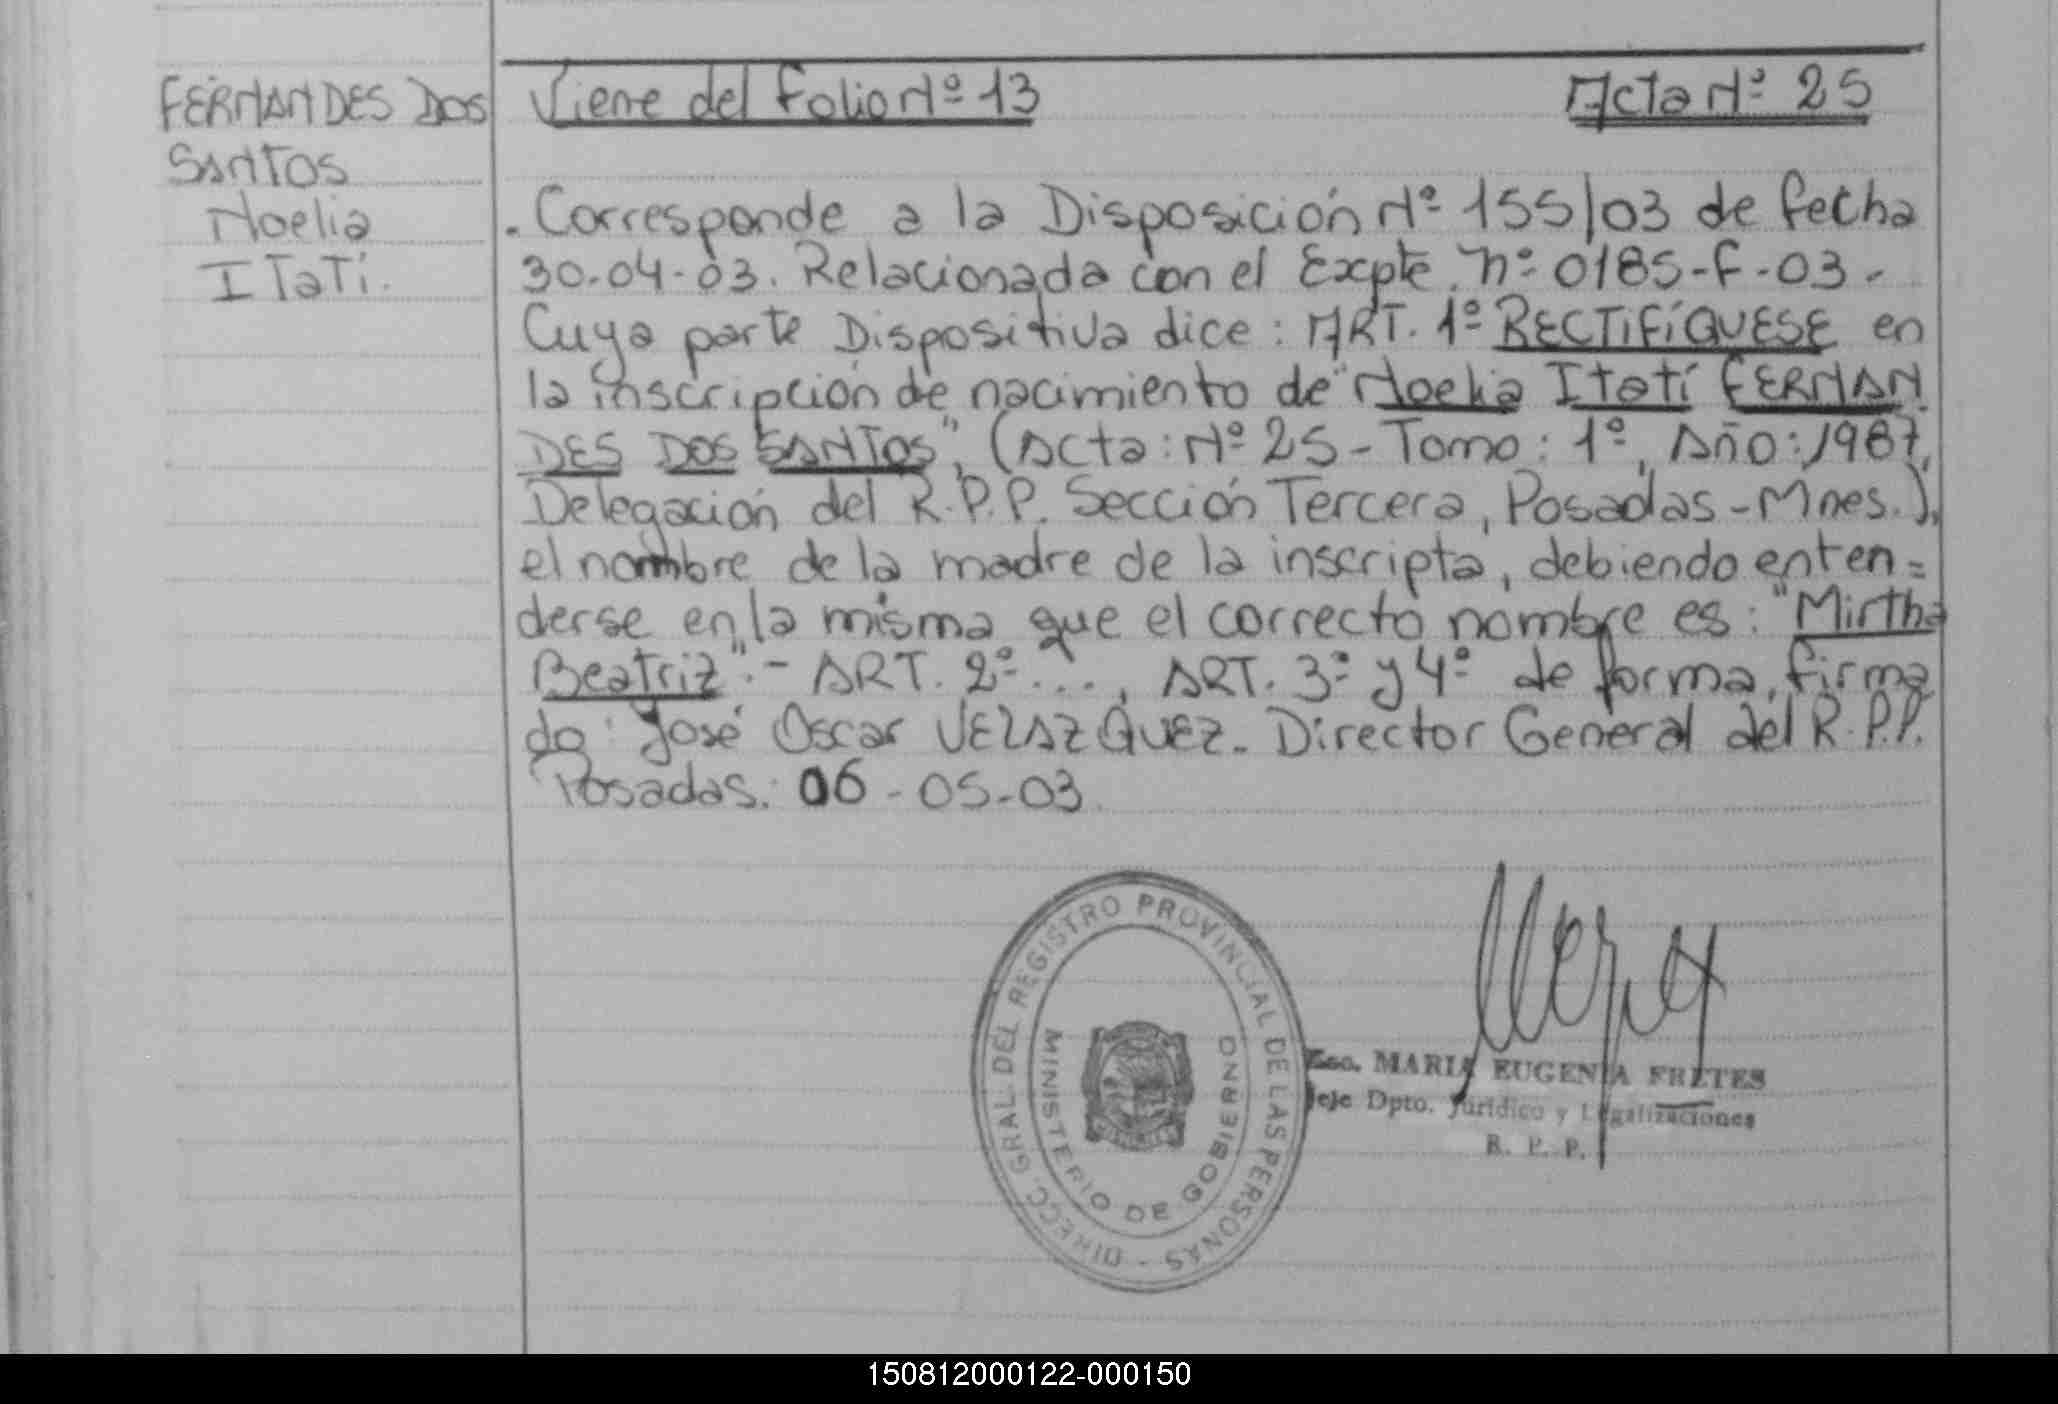 FERNANDES DOS
SANTOS
Noelia
ITaTí.
Viene del Folio Nº 13
Acta Nº 25
. Corresponde a la Disposición Nº 155/03 de fecha
30-04-03. Relacionada con el Expte. nº 0185-F-03.
Cuya parte Dispositiva dice: ART. 1º RECTIFÍQUESE en
la inscripción de nacimiento de "Noelia Itatí FERNAN
DES DOS SANTOS", (Acta: Nº 25 - Tomo: 1º, Año: 1987,
Delegación del R.P.P. Sección Tercera, Posadas - Mnes.),
el nombre de la madre de la inscripta, debiendo enten=
derse en la misma que el correcto nombre es: "Mirtha
Beatriz".- ART. 2º ..., ART. 3º y 4º de forma, firma
do: José Oscar VELAZQUEZ. Director General del R.P.P.
Posadas: 06-05-03.
DIRECC. GRAL. DEL REGISTRO PROVINCIAL DE LAS PERSONAS -
MINISTERIO DE GOBIERNO
Esc. MARIA EUGENIA FRETES
Jefe Dpto. Jurídico y Legalizaciones
R. P. P.
150812000122-000150